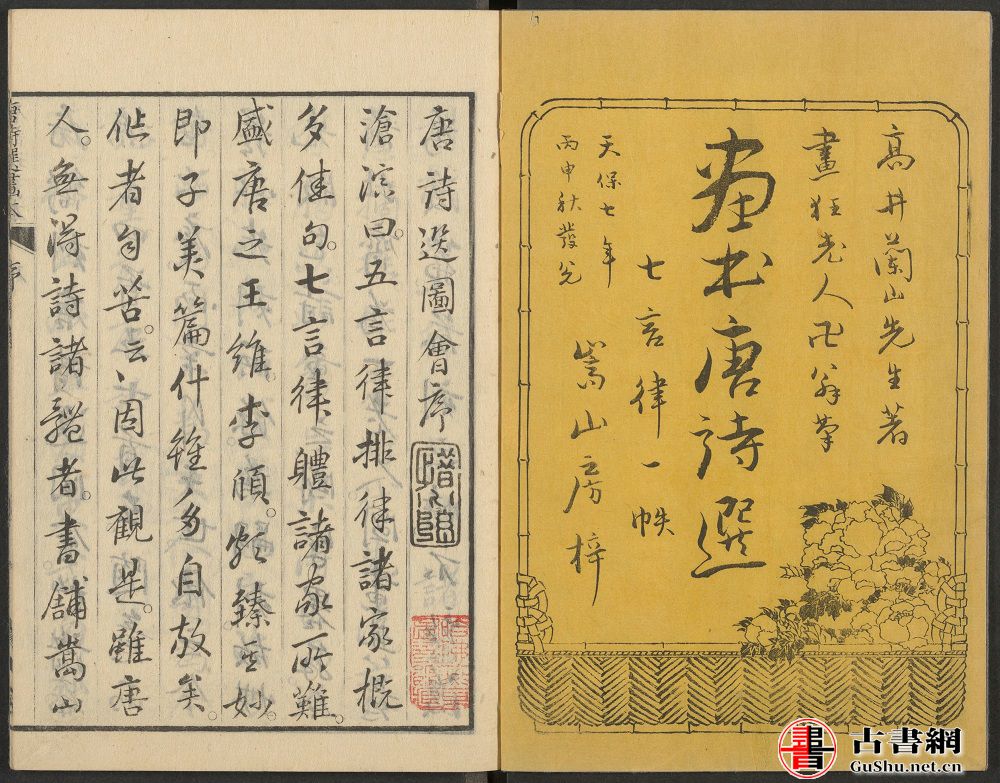 高井蘭山先生著
畫狂老人卍翁筆
画本唐詩選
七言律一帙
嵩山房梓
天保七年
丙申秋發兌
唐詩選圖會序
滄溟曰。五言律排律諸家概
多佳句。七言律體諸家所難。
盛唐之王維。李頎。頗臻其妙。
即子美篇什雖多自放矣。
作者自苦。云云因此觀是。雖唐
人。無得詩諸體者。書舖嵩山
序
古書網
GuShu.net.cn